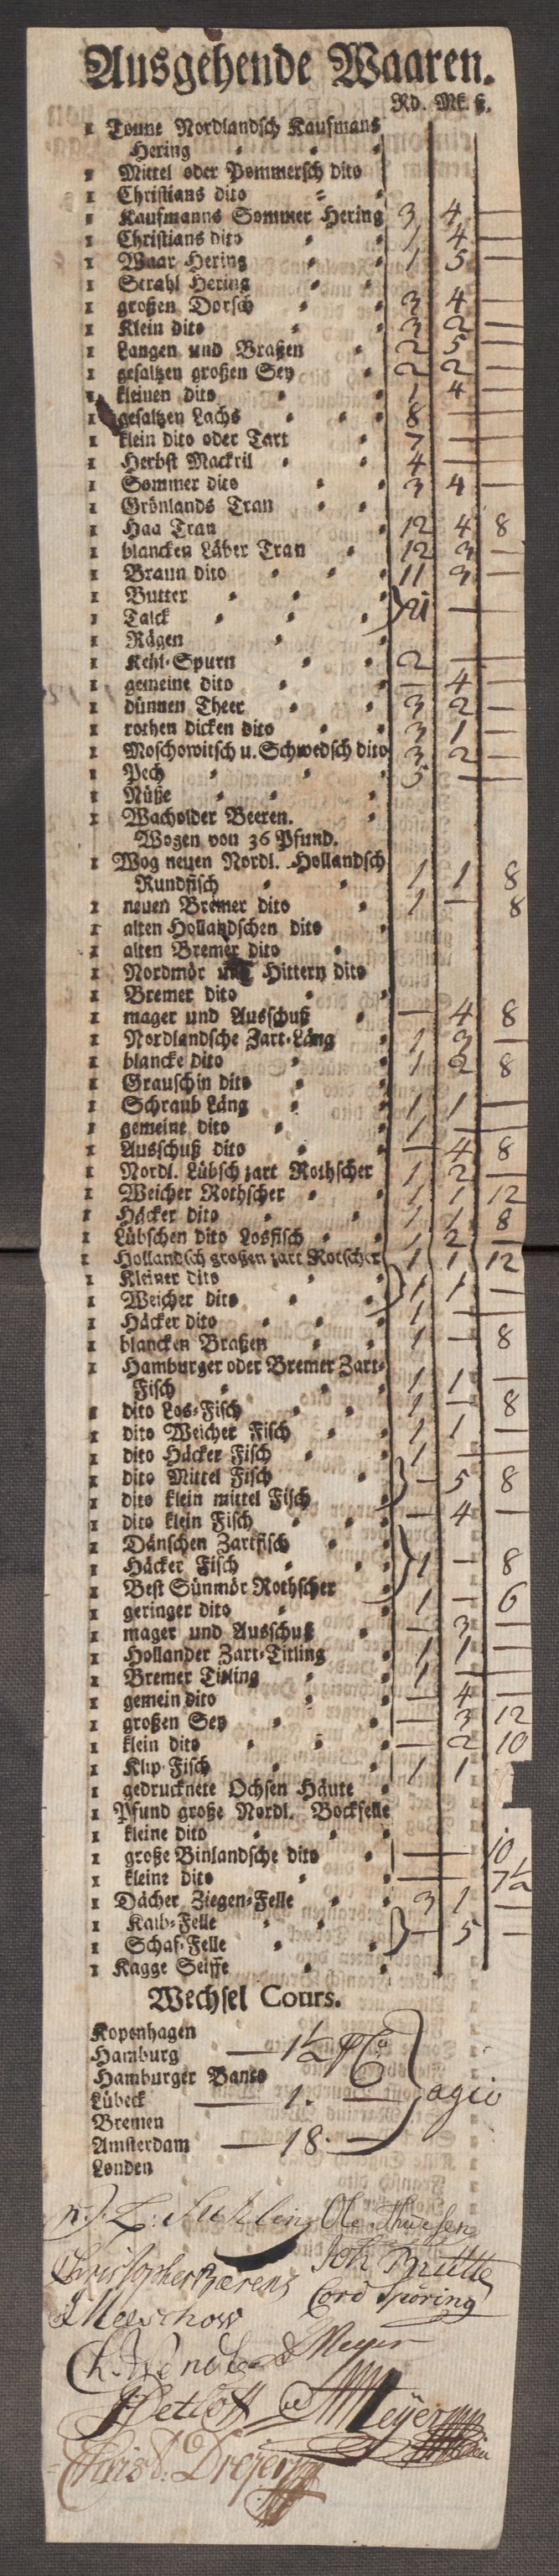 Ausgehende Waaren.
Rd. Mk. ß.
1 Tonne Nordlandsch Kaufmans
Hering
1 Mittel oder Pommersch dito
1 Christians dito
1 Kaufmanns Sommer Hering 3 4 —
1 Christians dito 1 4 —
1 Waar Hering 1 5 —
1 Strahl Hering
1 großen Dorsch 3 4 —
1 Klein dito 3 2 —
1 Langen und Braßen 2 5 —
1 gesaltzen großen Sey 2 2 —
1 kleinen dito 1 4 —
1 gesaltzen Lachs 8 —
1 klein dito oder Tart 7 — —
1 Herbst Mackril 4 —
1 Sommer dito 3 4 —
1 Grönlands Tran
1 Haa Tran 12 4 8
1 blancken Läber Tran 12 3 —
1 Braun dito 11 3 —
1 Butter
1 Talck } 21 —
1 Rägen
1 Kehl-Spurn 2 —
1 gemeine dito — 4 —
1 dünnen Theer 3 2 —
1 rothen dicken dito 3 1 —
1 Moschowitsch u. Schwedsch dito 3 2 —
1 Pech 5 — —
1 Nüße
1 Wacholder Beeren.
Wogen von 36 Pfund.
1 Wog neuen Nordl. Hollandsch
Rundfisch 1 1 8
1 neuen Bremer dito 1 — 8
1 alten Hollandschen dito
1 alten Bremer dito
1 Nordmör und Hittern dito
1 Bremer dito
1 mager und Ausschuß — 4 8
1 Nordlandsche Zart-Läng 1 3 —
1 blancke dito 1 2 8
1 Grauschin dito
1 Schraub Läng 1 1 —
1 gemeine dito 1 — —
1 Ausschuß dito — 4 8
1 Nordl. Lübsch zart Rothscher 1 2 —
1 Weicher Rothscher 1 1 12
1 Häcker dito 1 1 8
1 Lübschen dito Losfisch 1 2 —
1 Hollandsch großen zart Rotscher 1 1 12
1 Kleiner dito
1 Weicher dito } 1 1 —
1 Häcker dito 1 —
1 blancken Braßen 1 — 8
1 Hamburger oder Bremer Zart-
Fisch 1 1 —
1 dito Los-Fisch 1 — 8
1 dito Weicher Fisch 1 1 —
1 dito Häcker Fisch 1 —
1 dito Mittel Fisch
1 dito klein mittel Fisch } — 5 8
1 dito klein Fisch — 4 —
1 Dänschen Zartfisch
1 Häcker Fisch } 1 — 8
1 Best Sünmör Rothscher
1 geringer dito 1 — 6
1 mager und Ausschuß — 3 —
1 Hollander Zart-Titling 1 1 —
1 Bremer Titling 1 —
1 gemein dito — 4 —
1 großen Sey — 3 12
1 klein dito — 2 10
1 Klip-Fisch 1 1
1 gedrucknete Ochsen Häute
1 Pfund große Nordl. Bockfelle
1 kleine dito
1 große Binlandsche dito — — 10
1 kleine dito — — 7½
1 Dächer Ziegen-Felle 3 1 —
1 Kalb-Felle
1 Schaf-Felle } — 5 —
1 Kagge Seiffe
Wechsel Cours.
Kopenhagen
Hamburg — 1½
Hamburger Banco
Lübeck — 1. — agio
Bremen
Amsterdam — 18. —
Londen
Christopher Bærens
Cord Spöring
Meyer
Detloff
Meyer
Christ: Dreyer